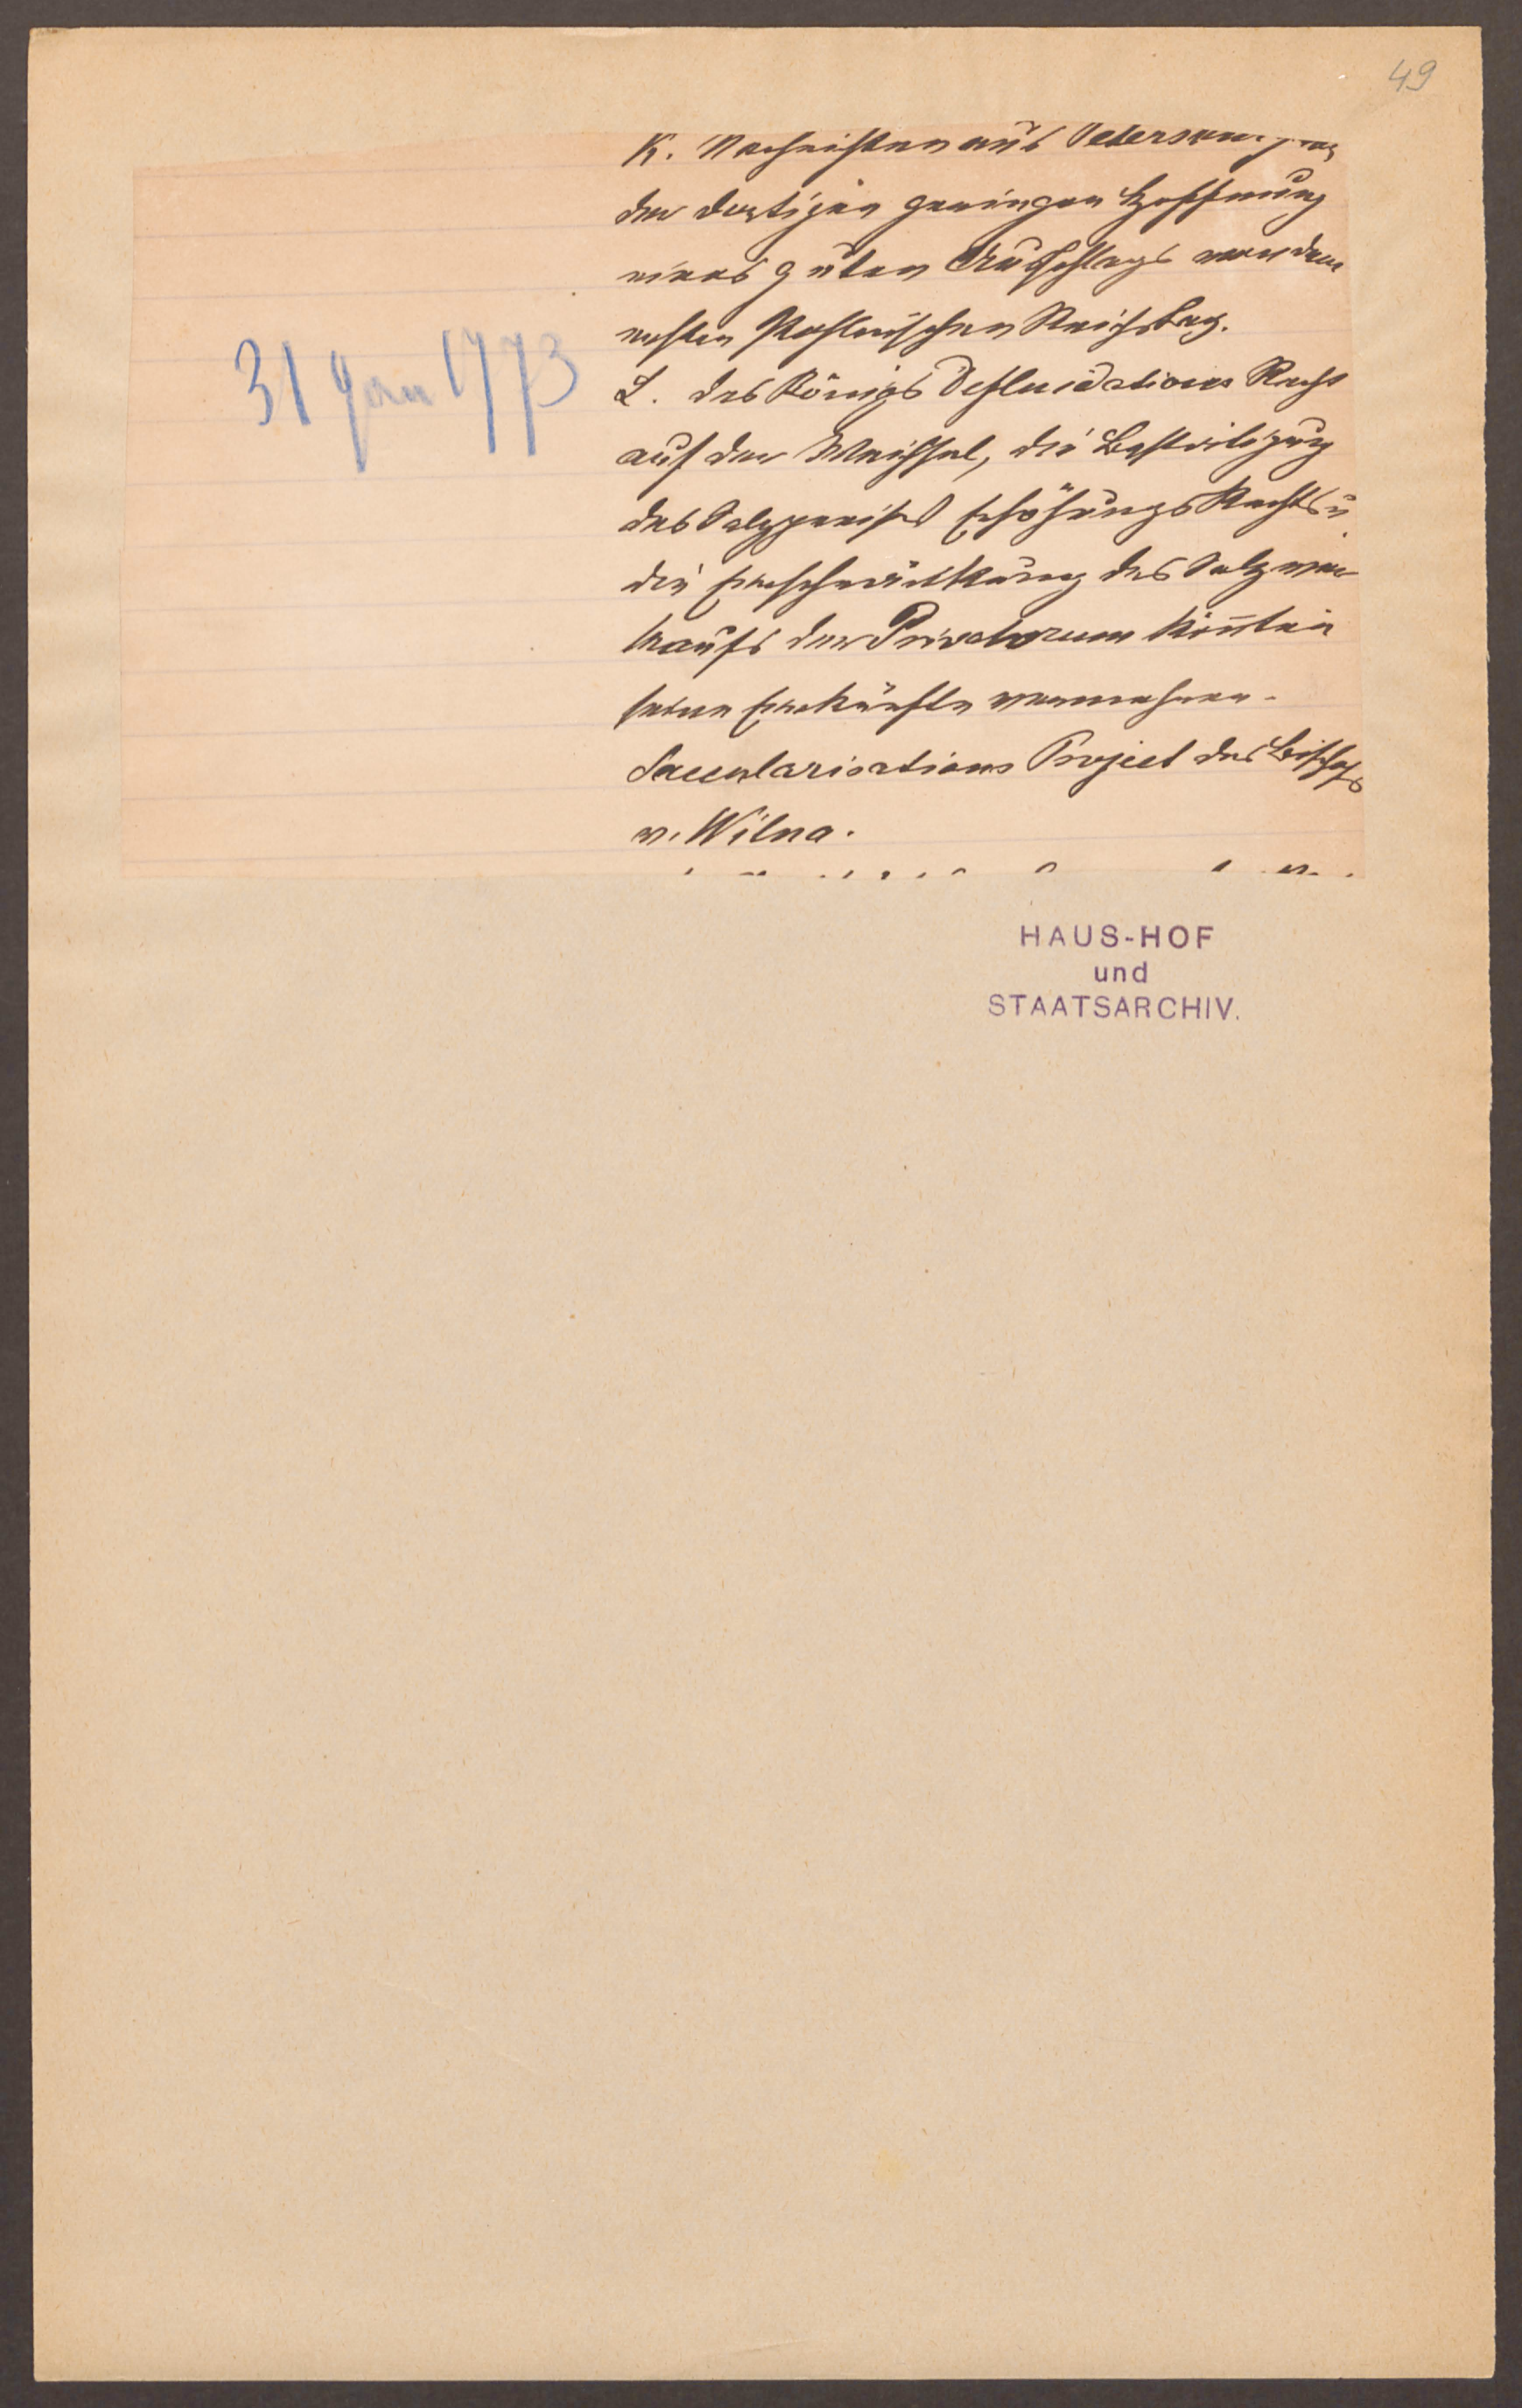 49
K. Nachrichten aus Petersburg von
der dortigen geringen Hoffnung
eines guten Ausschlags von dem
ersten Pohlnischen Reichstag.
31 Jan 1773
L. des Königs Defluidations Recht
auf der Weichsel, die Bestätigung
des Salzpreises Erhöhungs Rechts u.
die Einschränkung des Salzver
kaufs der Privatorum könnten
seine Einkünfte vermehren.
Saecularisations Project des Bischofs
v. Wilna.
HAUS-HOF
und
STAATSARCHIV.